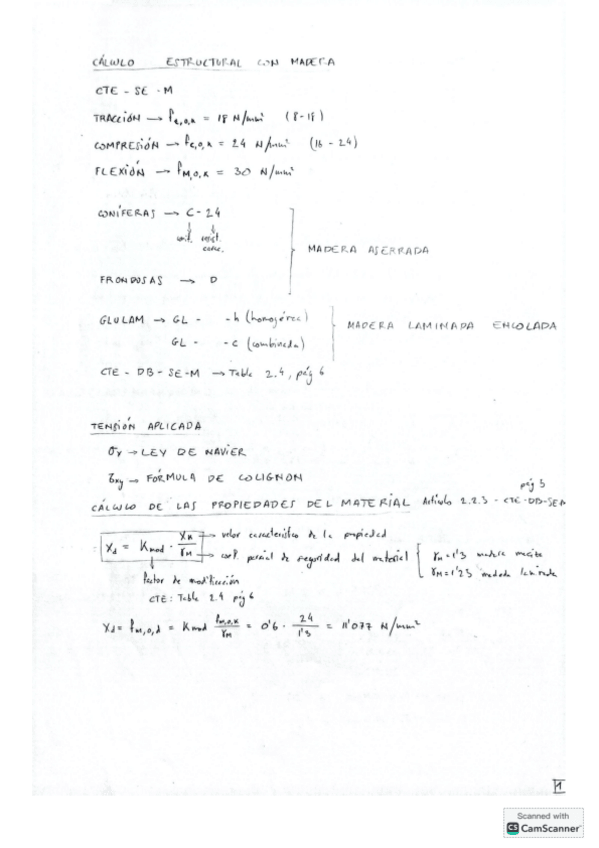 CÁLCULO ESTRUCTURAL CON MADERA
CTE - SE - M
TRACCIÓN → ft,0,k = 18 N/mm² (8-18)
COMPRESIÓN → fc,0,k = 24 N/mm² (16 - 24)
FLEXIÓN → fM,0,k = 30 N/mm²
CONÍFERAS → C - 24
MADERA ASERRADA
FRONDOSAS → D
GLULAM → GL - - h (homogénea)
GL - - c (combinada)
MADERA LAMINADA ENCOLADA
CTE - DB - SE - M → Tabla 2.4, pág 6
TENSIÓN APLICADA
→ LEY DE NAVIER
→ FÓRMULA DE COLIGNON
pág 5
CÁLCULO DE LAS PROPIEDADES DEL MATERIAL Artículo 2.2.3 - CTE-DB-SEM
Xd = Kmod · Xk / γM
→ valor característico de la propiedad
→ coef. parcial de seguridad del material
γM = 1'3 madera maciza
γM = 1'25 madera laminada
factor de modificación
CTE: Tabla 2.4 pág 6
Xd = fM,0,d = Kmod fM,0,k / γM = 0'6 · 24 / 1'3 = 11'077 N/mm²
1
Scanned with
CS CamScanner